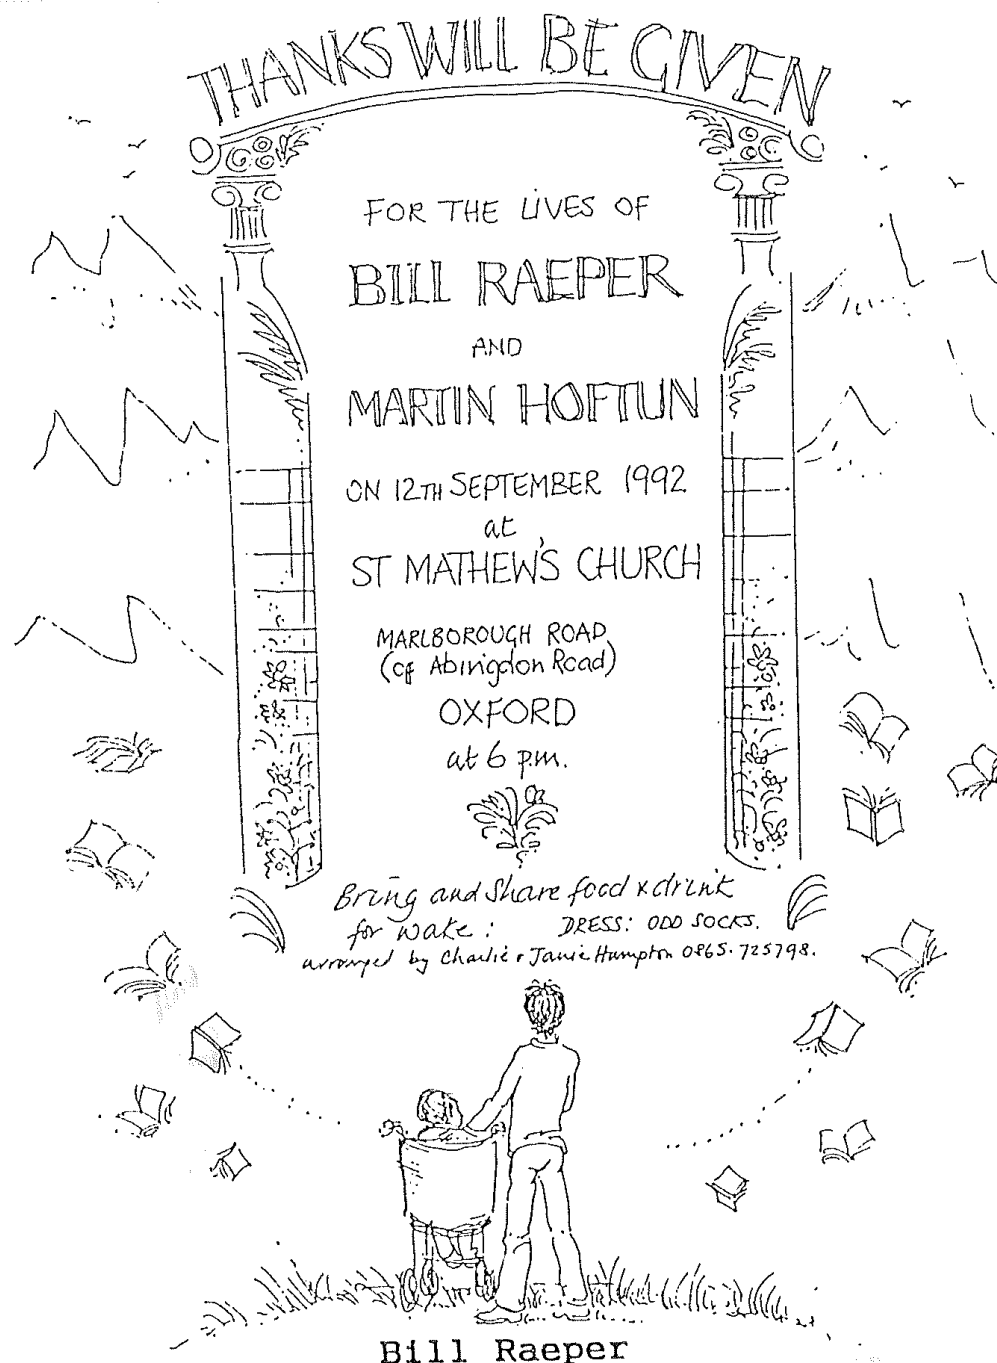 THANKS WILL BE GIVEN
FOR THE LIVES OF
BILL RAEPER
AND
MARTIN HOFTUN
ON 12TH SEPTEMBER 1992
at
ST MATHEW'S CHURCH
MARLBOROUGH ROAD
(off Abingdon Road)
OXFORD
at 6 p.m.
Bring and Share food & drink
for wake: DRESS: ODD SOCKS.
arranged by Charlie & Janie Hampton 0865·725798.
Bill Raeper